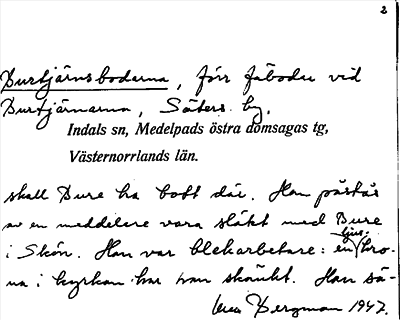 2
Burtjärnsbodarna, förr fäbodu vid
Burtjärnarna, Säters by.
Indals sn, Medelpads östra domsagas tg,
Västernorrlands län.
skall Bure ha bott där. Han påstås
av en meddelare vara släkt med Bure
i Skön. Han var bleckarbetare: en ljus-
(kro-
na i kyrkan har han skänkt. Han så-
Bergman 1947.